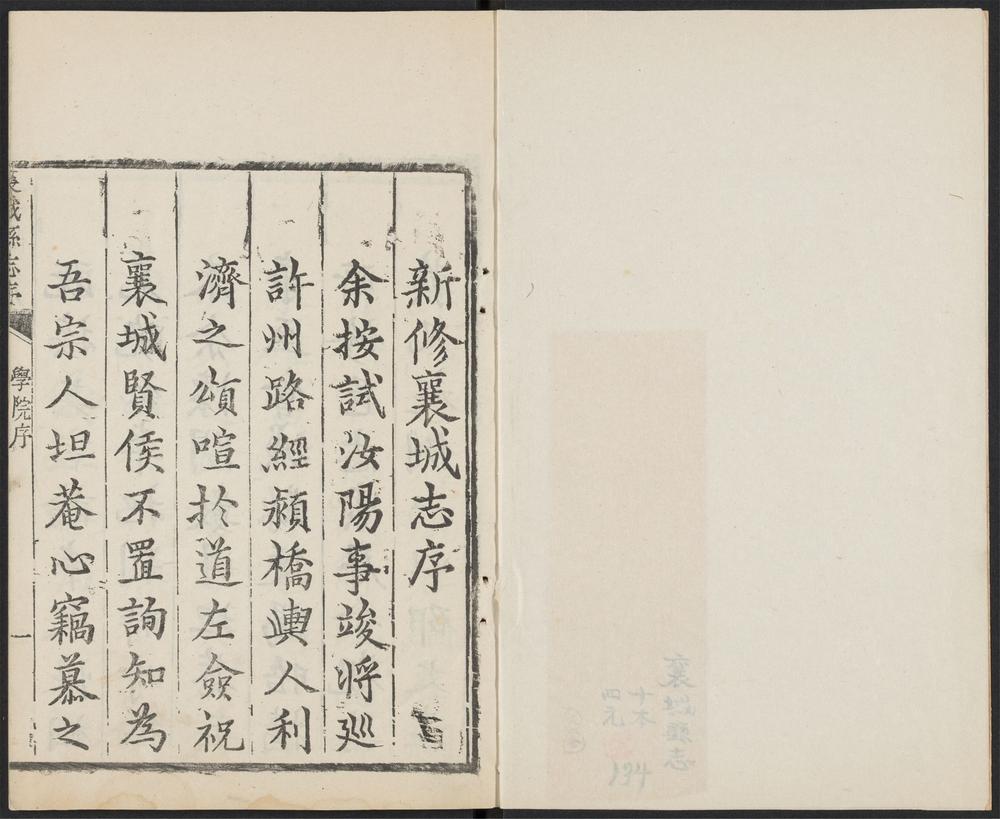 襄城縣志
十本
四元
134
新修襄城志序
余按試汝陽事竣將廵
許州路經潁橋輿人利
濟之頌喧扵道左僉祝
襄城賢侯不置詢知為
吾宗人坦菴心竊慕之
襄城縣志序
學院序
一